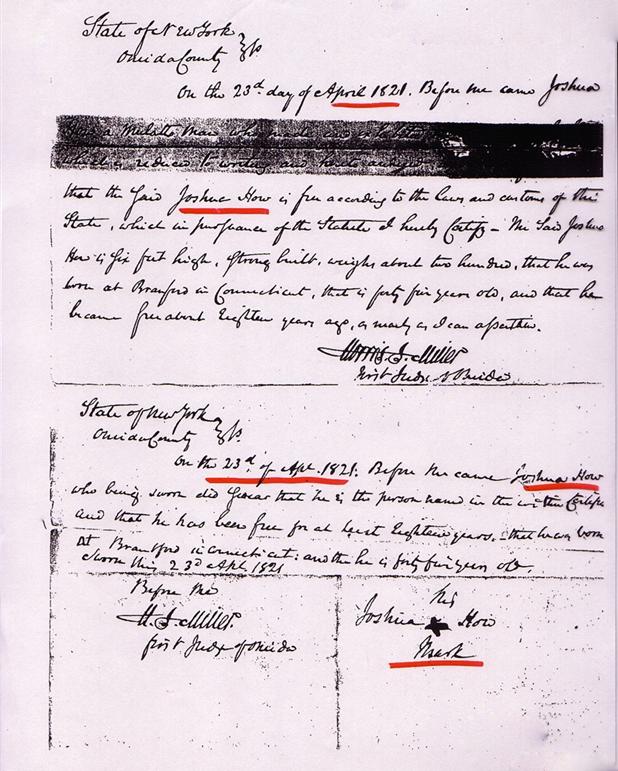 State of New York
Oneida County } ss.
On the 23d day of April 1821. Before me came Joshua
How a Mulatto Man who
which is reduced to writing and
that the Said Joshua How is free according to the laws and customs of this
State, which in pursuance of the Statute I hereby Certify – The Said Joshua
How is Six feet high, Strong built, weighs about two hundred, that he was
born at Branford in Connecticut, that is forty five years old, and that he
became free about Eighteen years ago, as nearly as I can ascertain.
Morris S. Miller
first Judge of Oneida
State of New York
Oneida County } ss.
On the 23d of Apl. 1821. Before me came Joshua How
who being sworn did swear that he is the person name in the within Certifi
and that he has been free for at least Eighteen years, that he was born
At Branford in Connecticut: and the he is forty five years old.
Sworn this 23d Apl. 1821
Before me
M. S. Miller.
first Judge of Oneida
his
Joshua + How
Mark